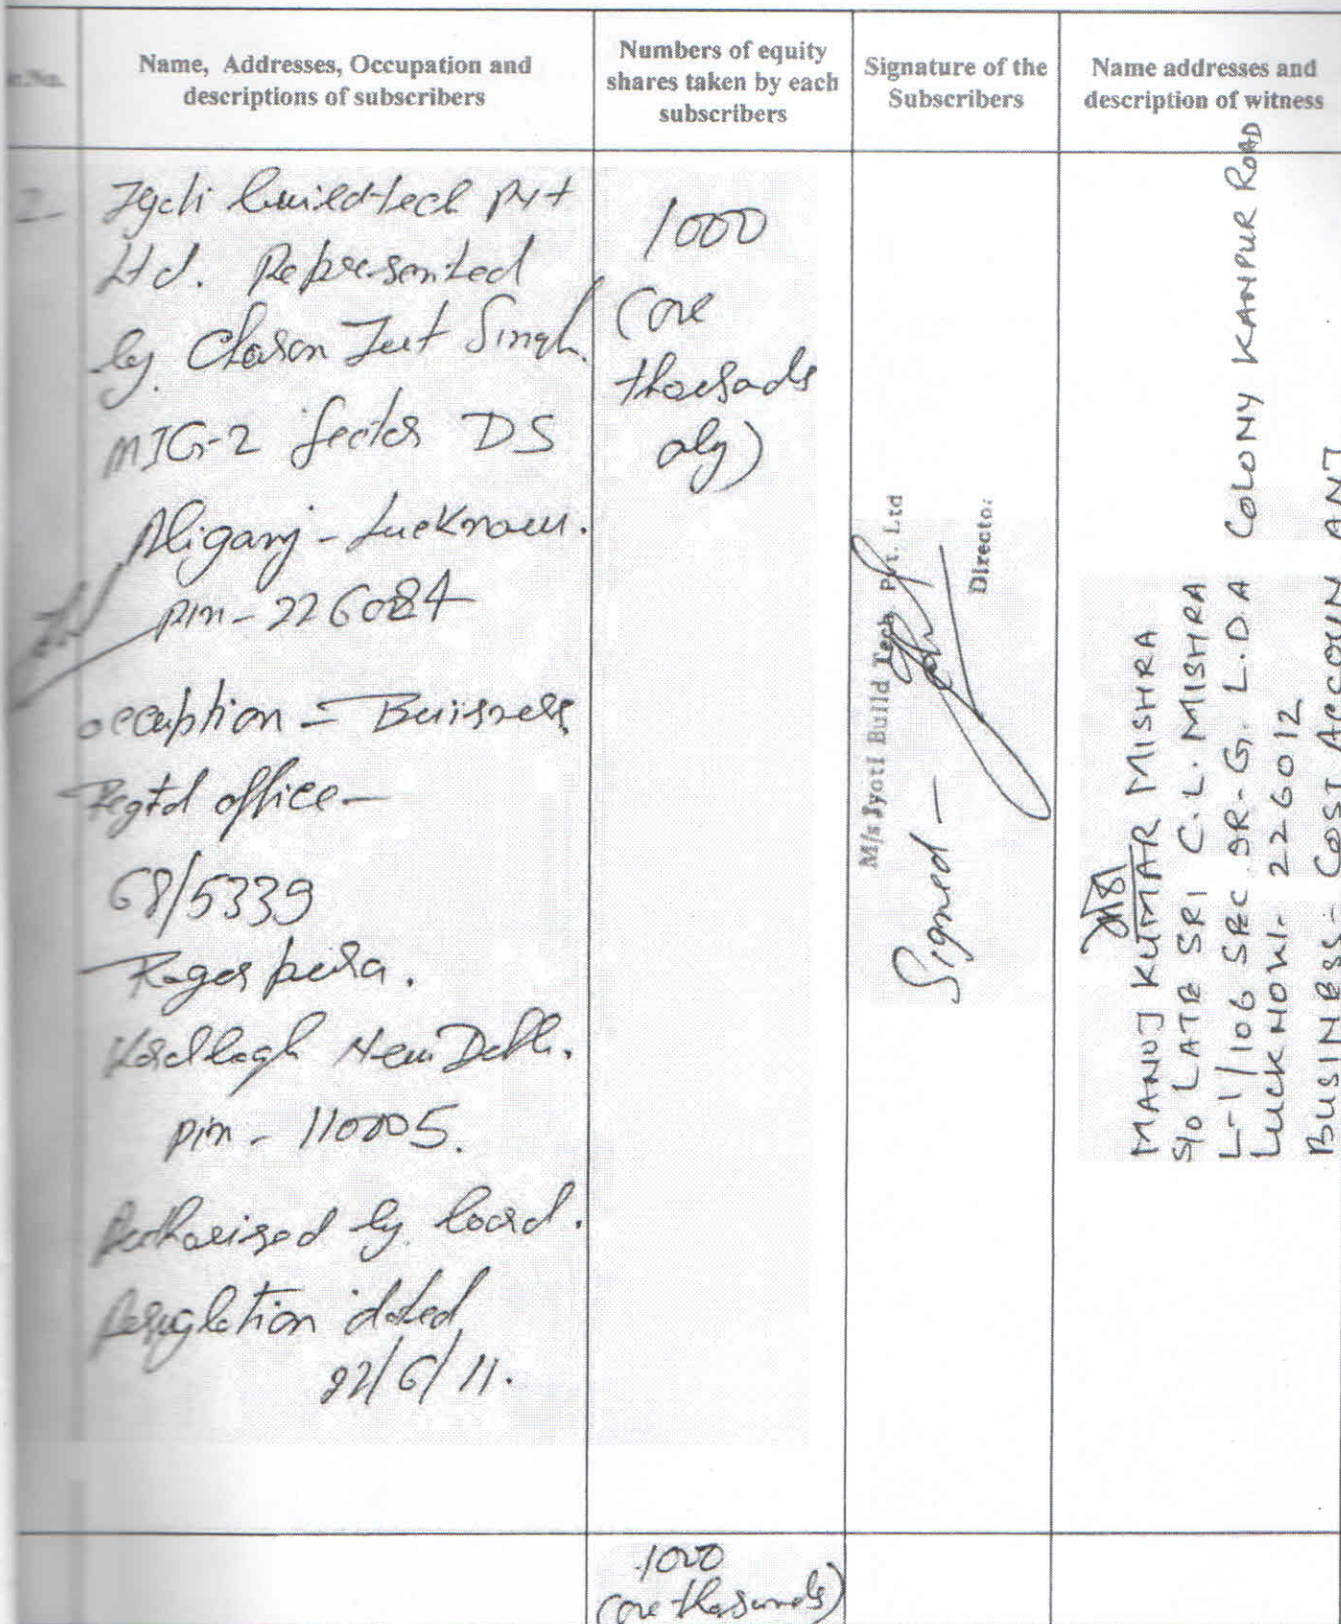 Name, Addresses, Occupation and
descriptions of subscribers
Numbers of equity
shares taken by each
subscribers
Signature of the
Subscribers
Name addresses and
description of witness
Jyoti buildtech Pvt
Ltd. Represented
by Charan Jeet Singh.
MIG-2 Sector DS
Aliganj - Lucknow.
Pin - 226024
occuption = Buisness
Regtd office -
68/5339
Pin - 110005.
Authorised by board.
dated
22/6/11.
1000
(one
thousads
oly)
M/s Jyoti Build Tech Pvt. Ltd
Director
Signed -
MANOJ KUMAR MISHRA
S/o LATE SRI C.L. MISHRA
L-1/106 SEC G. L.D.A COLONY KANPUR ROAD
LUCKNOW. 226012
BUSINESS - COST ACCOUNTANT
1000
(one thousands)